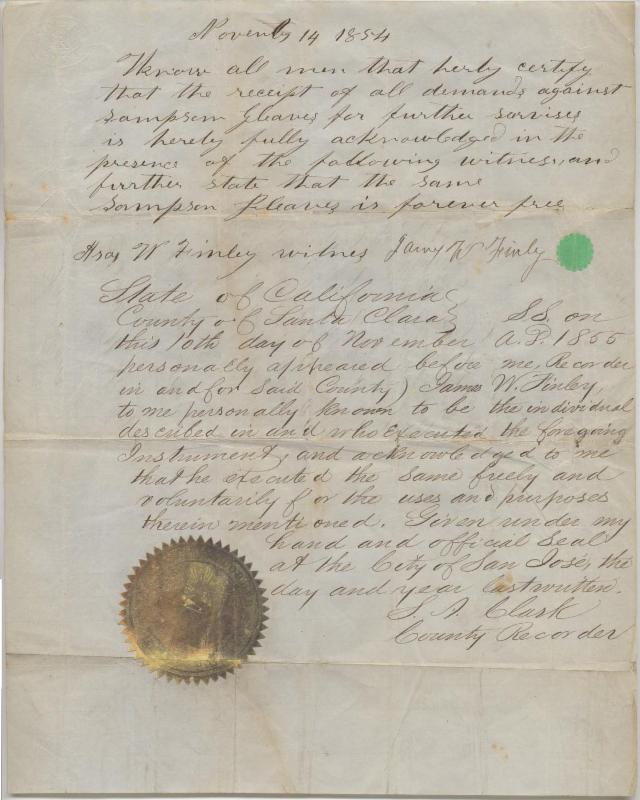 November 14 1854
Know all men that herby certify
that the receipt of all demands against
Sampson Gleaves for further sarvises
is hereby fully acknowledged in the
presence of the following witness, and
further state that the same
Sampson Gleaves is forever free
Asa W Finley witnes James W Finly
State of California
County of Santa Clara SS. on
this 10th day of November A.D. 1855
personally appeared before me, Recorder
in and for Said County) James W. Finley,
to me personally known to be the individual
described in and who executed the foregoing
Instrument, and acknowledged to me
that he executed the same freely and
voluntarily for the uses and purposes
therein mentioned. Given under my
hand and official Seal
at the City of San José, the
day and year last written.
S. A. Clark
County Recorder